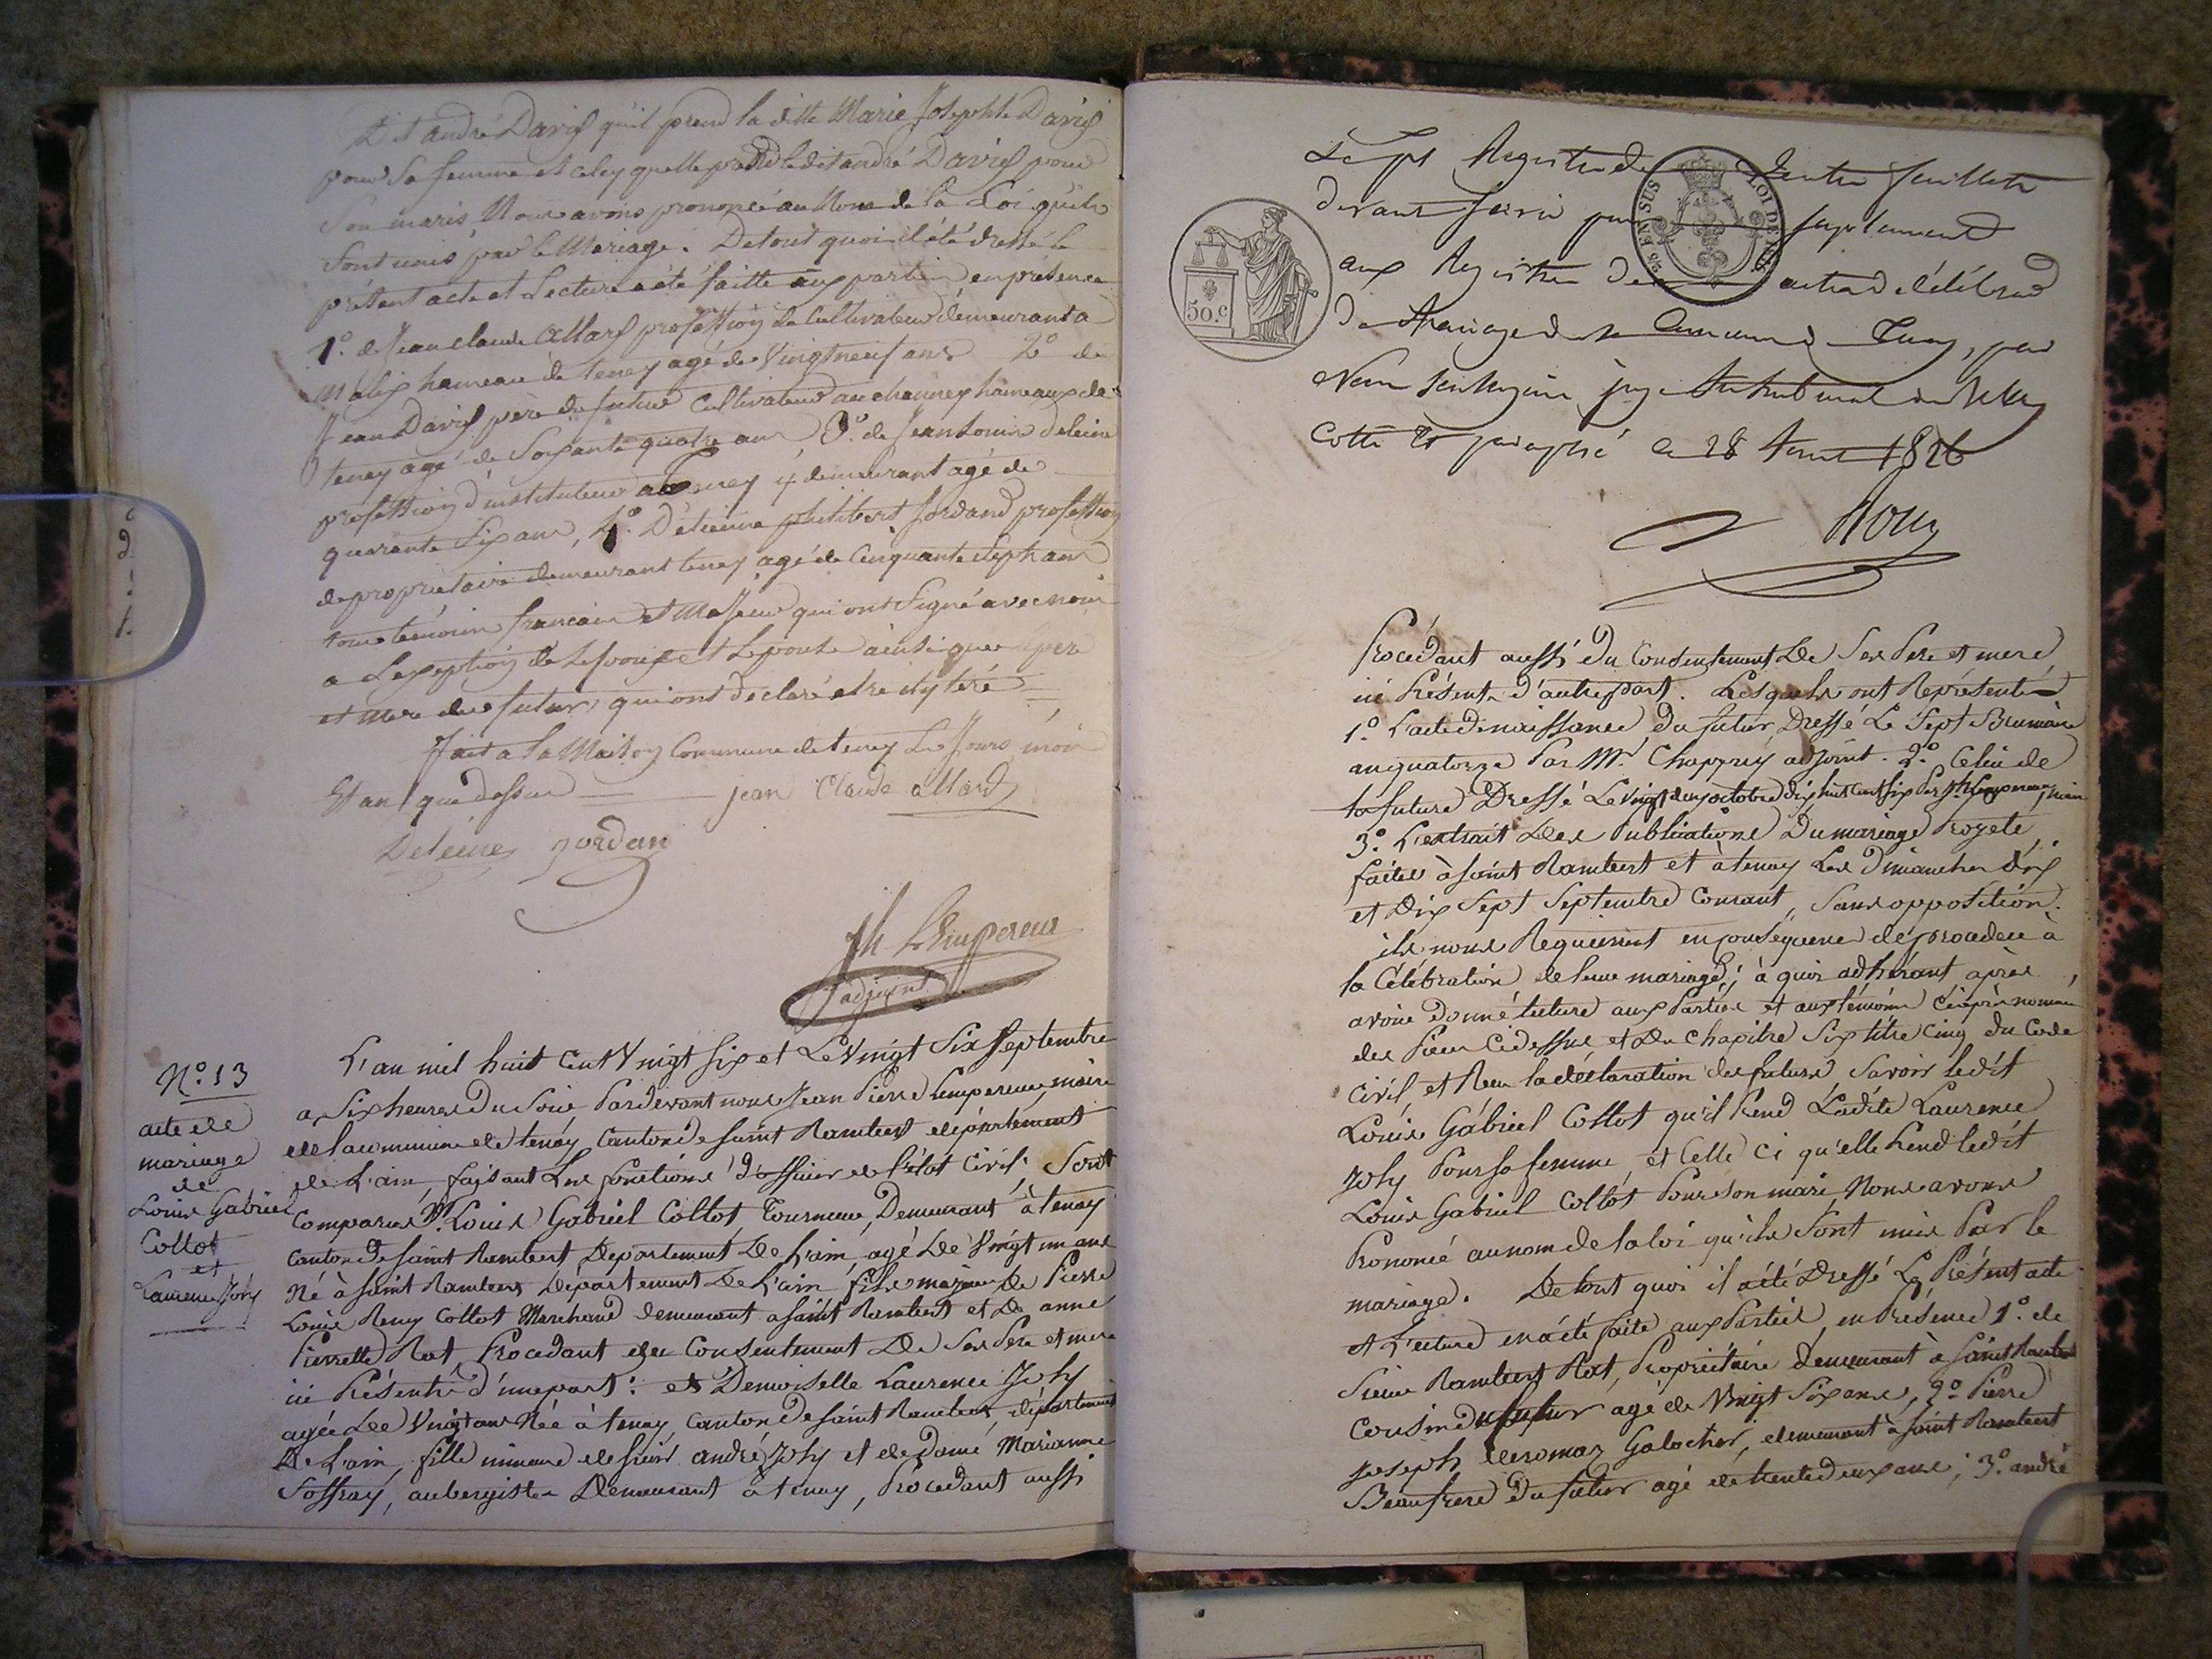 Dit andré Davif qu'il prend la ditte Marie Josephte Davif
pour sa femme et celuy quelle prend ledit andré Davif pour
Son maris, Nous avons prononcé au Nom de la Loi qu'ils
sont unis par le Mariage. De tout quoi il a été dressé le
présent acte et Lecture a été faitte aux parties en présence
1°. de Jean claude Allard profession de Cultivateur démeurant a
Malix hameau de tenay agé de Vingt neuf ans 2° de
Jean Davif père du futur Cultivateur au channey hameaux de
tenay agé de Soixante quatre ans 3°. de Jean Louis Deleine
profession d'instituteur a Tenay y demeurant agé de
quarante Six ans, 4°. D'étienne philibert Jordand profession
de propriétaire demeurant tenay agé de Cinquante Sept ans
tous témoins francais et Majeurs qui ont Signé avec nous
a Lexeption de Lepoux et Lepouse ainsi que père
et mere du futur, qui ont declaré etre illyteré
fait a la Maison Commune de tenay Les Jours, mois
Et an que dessus jean Claude allard
Deleine Jordan
Jh Lempereur
adjoint
N°. 13
acte de
mariage
de
Louis Gabriel
Collot
et
Laurence Joly
L'an mil huit Cent Vingt six et Le Vingt Six Septembre
a Six heures du Soir Pardevant nous Jean Pierre Lempereur, maire
de la commune de tenay Canton de saint Rambert département
de L'ain, faisant Les fonctions d'officier de l'etat Civil; Sont
Comparus Mr. Louis Gabriel Collot, Tourneur, Demeurant à tenay
Canton de saint Rambert, Département De L'ain, agé De Vingt un ans
Né à saint Rambert Département De L'ain, fils majeur De Pierre
Louis Remy Collot Marchand demeurant a saint Rambert et De anne
Pierrette Rat, Procedant du Consentement De Ses Père et mere
ici Présents d'une part: et Demoiselle Laurence Joly
agée De Vingt ans Née à tenay, Canton de saint Rambert, département
De L'ain, fille mineure de sieur andré Joly et de dame Marianne
Soffray, aubergistes Demeurant à tenay, Procedant aussi
50.c
25 EN SUS
LOI DE
aux Registres des actes de célébrations
de Mariage de la Commune de Tenay, par
Nous soussigné juge
Cotté et paraphé le 28 1826
Roux
Procedant aussi du Consentement De Ses Pere et mere
ici Présents d'autre part. Lesquels ont Représenté
1.° L'acte de naissance du futur, Dressé Le Sept Brumaire
an quatorze Par Mr. Chappuy adjoint. 2.° Celui de
la future Dressé Le vingt deux octobre dix huit cent six Par Jh Lempereur, maire
3.° L'extrait Des Publications Du mariage Projeté,
faites à saint Rambert et à tenay Les Dimanches dix
et Dix Sept Septembre Courant, Sans opposition.
ils nous Requierent en conséquence de proceder à
la Célébration de leur mariage; à quoi adhérant après
avoir donné lecture aux Parties et aux témoins ci après nommés
des Pieces Cidessus et Du chapitre Six titre Cinq du Code
Civil, et Reçu la déclaration des futurs Savoir ledit
Louis Gabriel Collot qu'il Prend Ladite Laurence
Joly Pour sa femme, et Celle Ci qu'elle Prend ledit
Louis Gabriel Collot Pour son mari Nous avons
Prononcé au nom de la loi qu'ils Sont unis Par le
mariage. De tout quoi il a été Dressé Le Présent acte
et Lecture en a été faite aux Parties, en Présence 1.° de
Sieur Rambert Rat, Propriétaire demeurant à saint Rambert
Cousin du futur agé de Vingt Six ans, 2° Pierre
Joseph Galochar, demeurant à saint Rambert
Beaufrere du futur agé de trente deux ans; 3.° andré